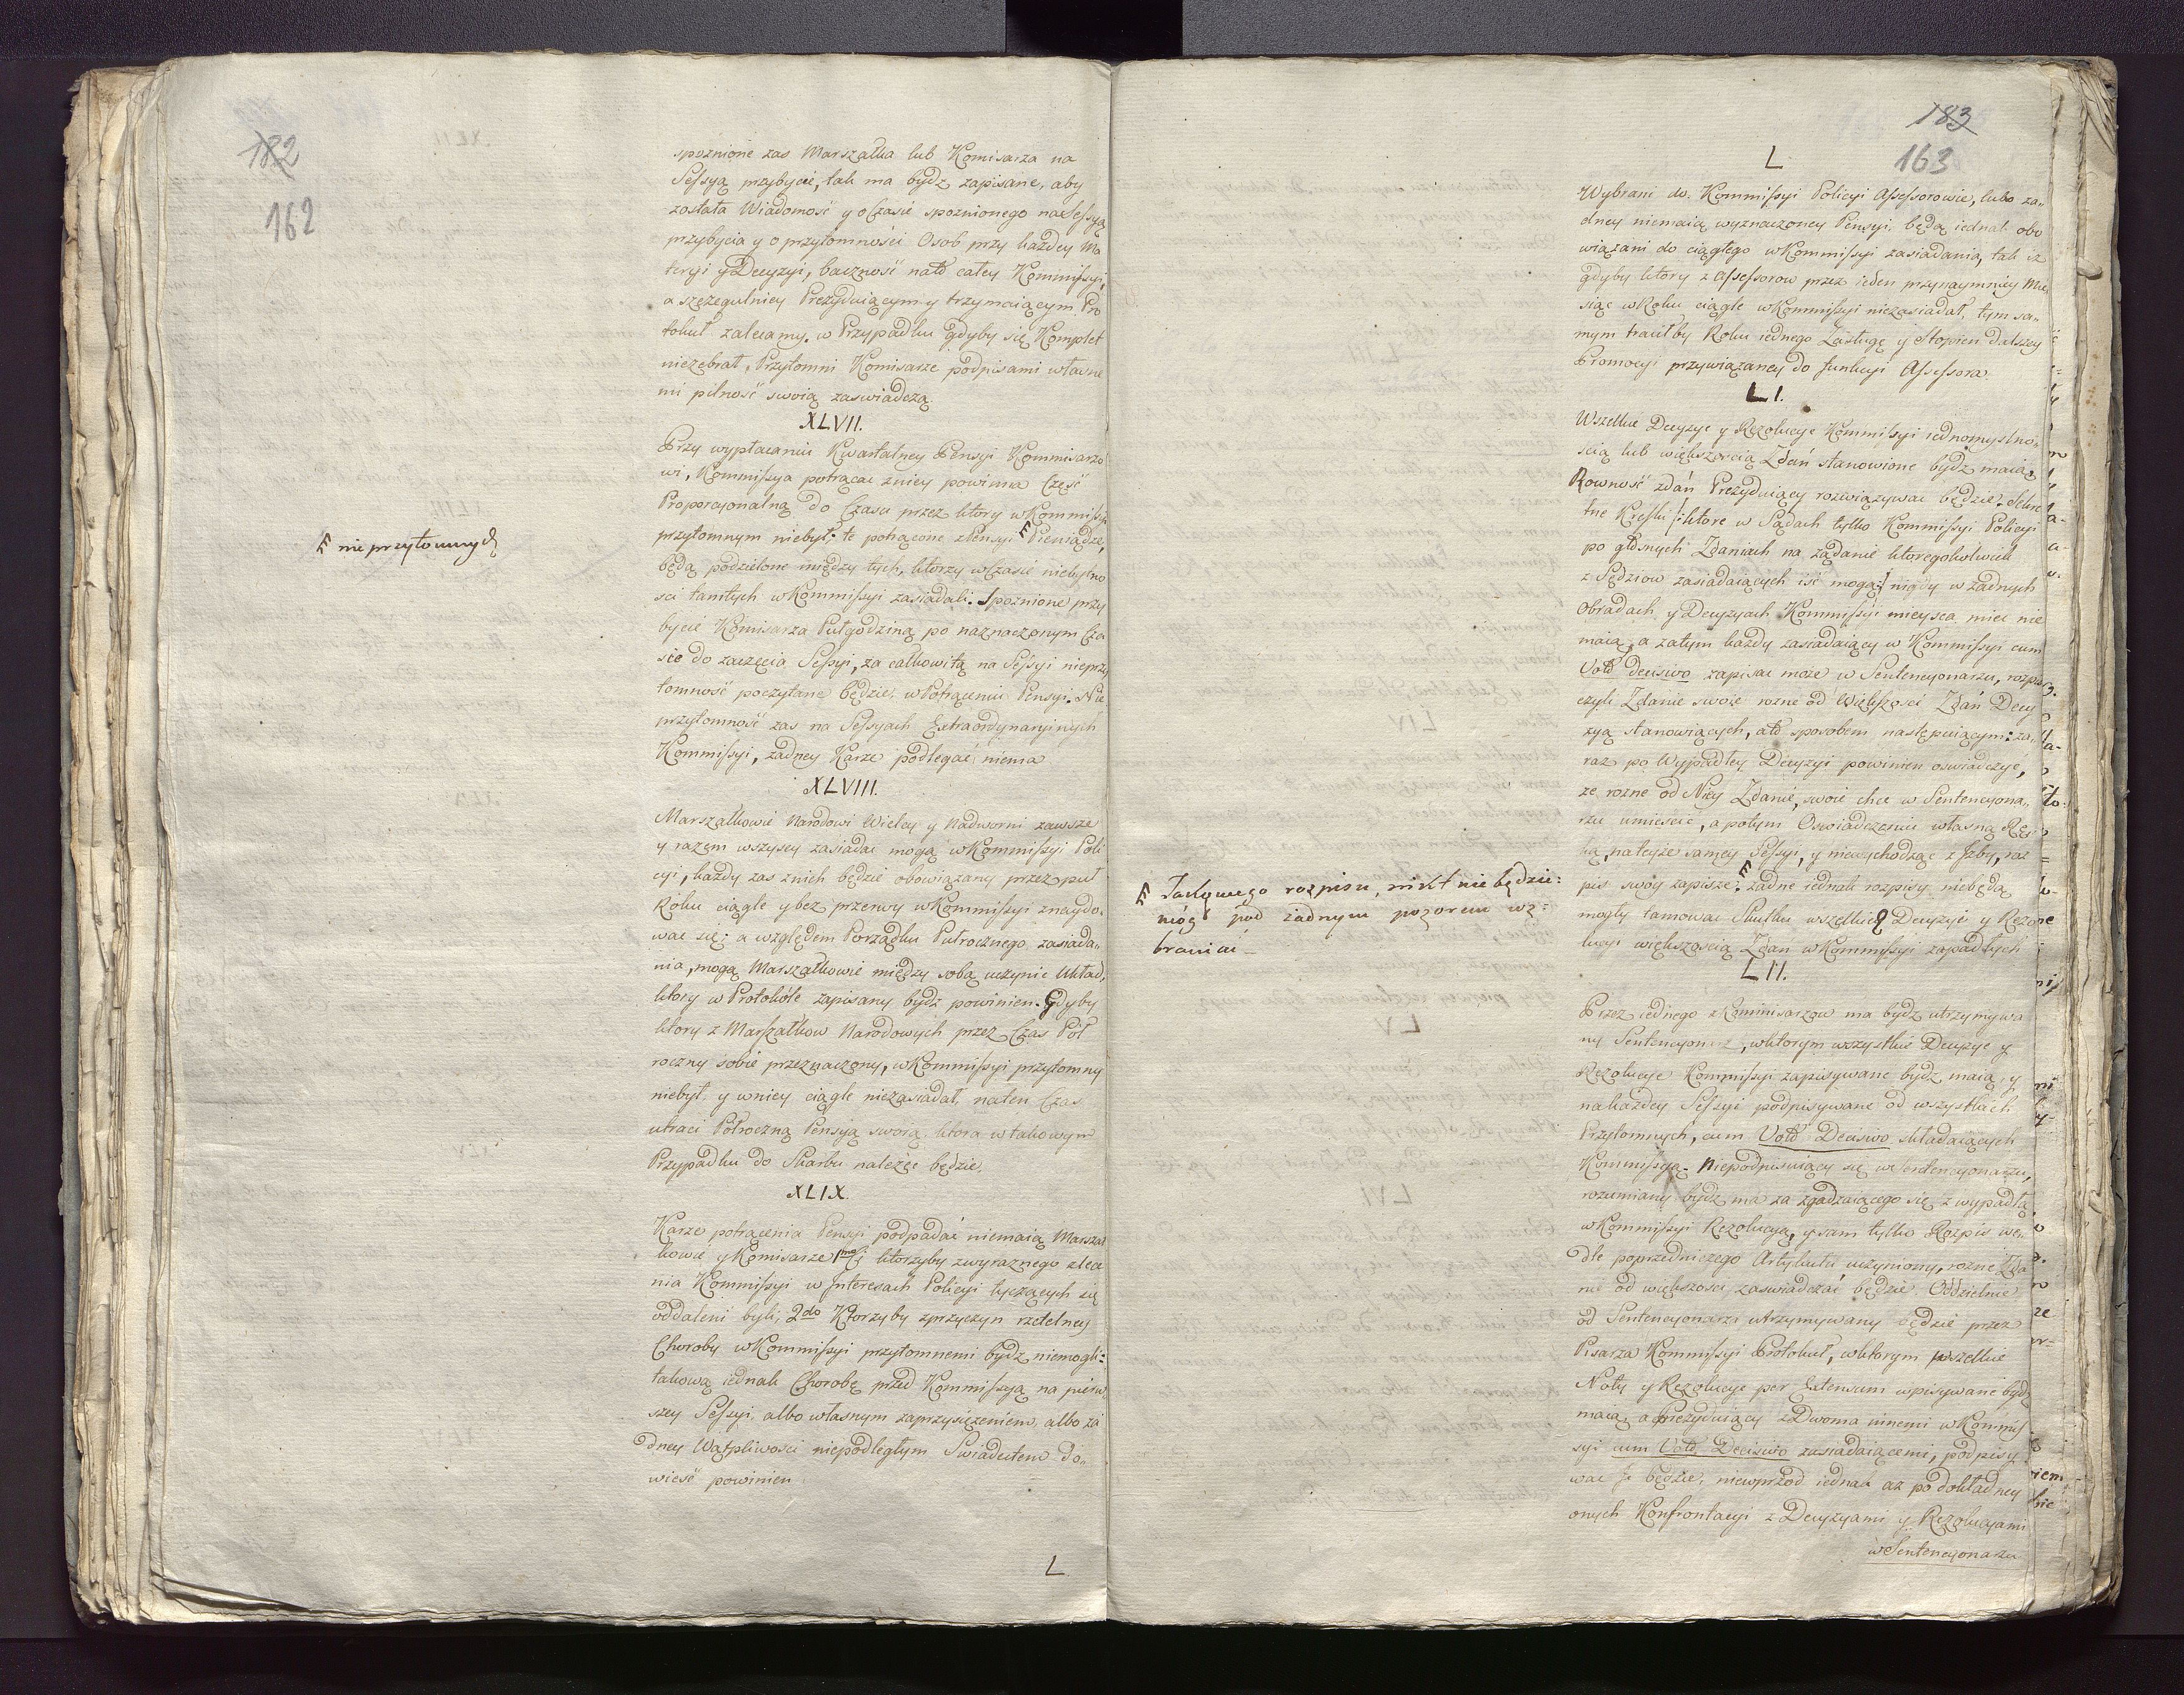 182
162
spoznione zas Marszałka lub Komisarza na
Sessyą przybycie, tak ma bydz zapisane, aby
została Wiadomość y o Czasie spoznionego na Sessyą
przybycia y o przytomności Osob przy każdey Ma
teryi y Decyzyi, baczność nato całey Kommissyi,
a szczegulniey Prezyduiącym y trzymaiącym Pro
tokuł zalecamy. w Przypadku gdyby się Komplet
niezebrał, Przytomni Komisarze podpisami własne
mi pilność swoią zaswiadczą.
XLVII.
Przy wypłacaniu Kwartalney Pensyi Kommisarzo
wi, Kommissya potrącac zniey powinna Część
Proporcyonalną do Czasu przez ktory w Kommissyi
przytomnym niebył: te potrącone z Pensyi Pieniądze,
nieprzytomnych
będą podzielone między tych, ktorzy w Czasie niebytno
sci tamtych w Kommissyi zasiadali. Spoznione przy
bycie Komisarza Pułgodziną po naznaczonym Cza
sie do zaczęcia Sessyi, za całkowitą na Sessyi nieprzy
tomność poczytane będzie, w Potrąceniu Pensyi. Nie
przytomność zas na Sessyach Extraordynaryinych
Kommissyi, zadney Karze podlegać niema
XLVIII.
Marszałkowie Narodowi Wielcy y Nadworni zawsze
y razem wszyscy zasiadac mogą w Kommissyi Poli
cyi, każdy zas znich będzie obowiązany przez puł
Roku ciągle y bez przerwy w Kommissyi znaydo
wac się; a względem Porządku Pułrocznego zasiada„
nia, mogą Marszałkowie między sobą uczynic Układ,
ktory w Protokóle zapisany bydz powinien. Gdyby
ktory z Marszałkow Narodowych przez Czas Pół
roczny sobie przeznaczony, w Kommissyi przytomny
niebył, y wniey ciągle niezasiadał, naten Czas
utraci Półroczną Pensyą swoią, ktora w takowym
Przypadku do Skarbu należęc będzie.
XLIX.
Karze potrącenia Pensyi podpadać niemaią Marszał
kowie y Komisarze 1mo ktorzyby z wyraznego zlece
nia Kommissyi w Interesach Policyi tyczących się
oddaleni byli, 2do Ktorzyby zprzyczyn rzetelney
Choroby w Kommissyi przytomnemi bydz niemogli:
takową iednak Chorobę przed Kommissyą na pierw
szey Sessyi, albo własnym zaprzysiężeniem, albo za
dney Wątpliwosci niepodległym Swiadectem do„
wieść powinien
L
183
163
L
Wybrani do Kommissyi Policyi Assessorowie, lubo za„
dney niemaią wyznaczoney Pensyi, będą iednak obo
wiązani do ciągłego w Kommissyi zasiadania, tak iz
gdyby ktory z Assessorow przez ieden przynaymniey Mie
siąc w Roku ciągle w Kommissyi niezasiadał, tym sa„
mym traciłby Roku iednego Zasługę y Stopien dalszey
Promocyi przywiązaney do funkcyi Assessora.
LI.
Wszelkie Decyzye y Rezolucye Kommissyi iednomyslno„
scią lub większoscią Zdań stanowione bydz maią,
Rowność zdań Prezyduiący rozwiązywac będzie. Sekre
tne Kreski /: ktore w Sądach tylko Kommissyi Policyi
po głosnych Zdaniach na ządanie ktoregokolwiek
z Sędziow zasiadaiących iść mogą :/ nigdy w żadnych
Obradach y Decyzyach Kommissyi mieysca miec nie
maią, a zatym każdy zasiadaiący w Kommissyi cum
Voto decisivo zapisac może w Sentencyonarzu, rozpis
czyli Zdanie swoie rozne od Większosci Zdań Decy
zyą stanowiących, ato sposobem następuiącym: za„
raz po Wypadłey Decyzyi powinien oswiadczyc,
ze rozne od Niey Zdanie swoie chce w Sentencyona„
rzu umiescic, a potym Oswiadczeniu własną Rę
ką, na teyże samey Sessyi, y niewychodząc z Izby, roz
pis swóy zapisze; żadne iednak rozpisy niebędą
Takowego rozpisu, nikt nie będzie
mógł pod żadnym pozorem wz:
braniać
mogły tamowac Skutku wszelkich Decyzyi y Rezo
lucyi większoscią Zdań w Kommissyi zapadłych
LII.
Przez iednego z Kommisarzow ma bydz utrzymywa
ny Sentencyonarz, w ktorym wszystkie Decyzye y
Rezolucye Kommissyi zapisywane bydz maią, y
na każdey Sessyi podpisywane od wszystkich
Przytomnych, cum Voto Decisivo składaiących
Kommissyą. Niepodpisuiący się w Sentencyonarzu,
rozumiany bydz ma za zgadzaiącego się z wypadłą
w Kommissyi Rezolucyą, y sam tylko Rozpis we„
dle poprzedniczego Artykułu uczyniony, rozne Zda
nie od większosci zaswiadczać będzie. Oddzielnie
od Sentencyonarza utrzymywany będzie przez
Pisarza Kommissyi Protokuł, w ktorym wszelkie
Noty y Rezolucye per Extensum wpisywane bydz
maią, a Prezyduiący z Dwoma innemi w Kommis
syi cum Voto Decisivo zasiadaiącemi, podpisy
wac je będzie, niewprzod iednak az po dokładney
onych Konfrontacyi z Decyzyami y Rezolucyami
w Sentencyonarzu